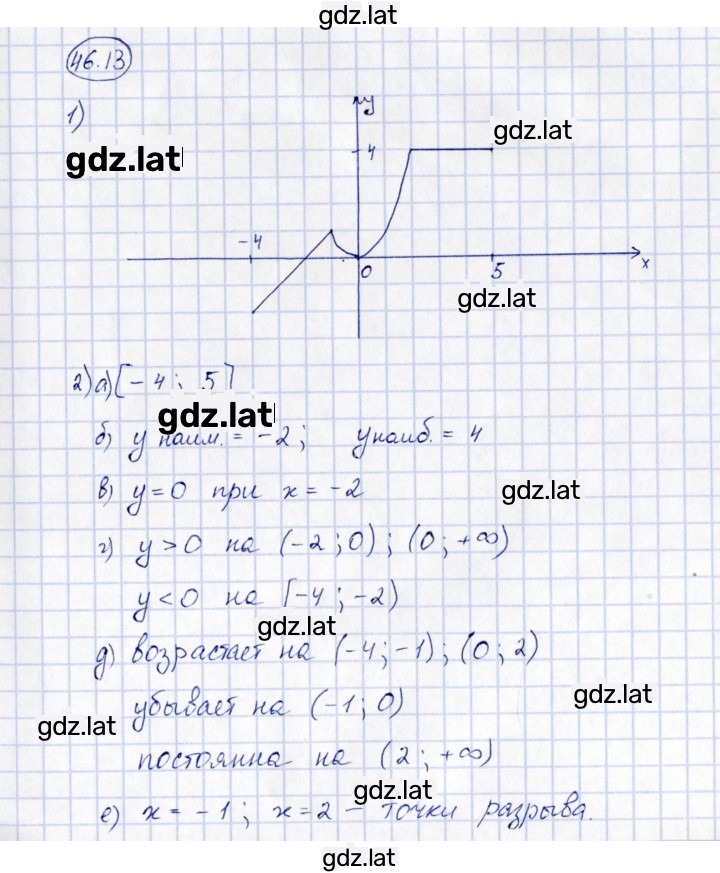 gdz.lat
46.13
1)
y
gdz.lat
4
gdz.lat
-4
0
5
x
gdz.lat
2) а) [-4; 5]
gdz.lat
б) y наим. = -2; y наиб. = 4
в) y = 0 при x = -2
gdz.lat
г) y > 0 на (-2; 0); (0; +∞)
y < 0 на [-4; -2)
gdz.lat
д) возрастает на (-4; -1); (0; 2)
убывает на (-1; 0)
gdz.lat
gdz.lat
постоянна на (2; +∞)
gdz.lat
е) x = -1; x = 2 - точки разрыва.
gdz.lat